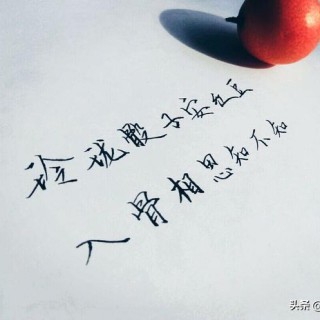 玲珑骰子安红豆
入骨相思知不知
头条 @